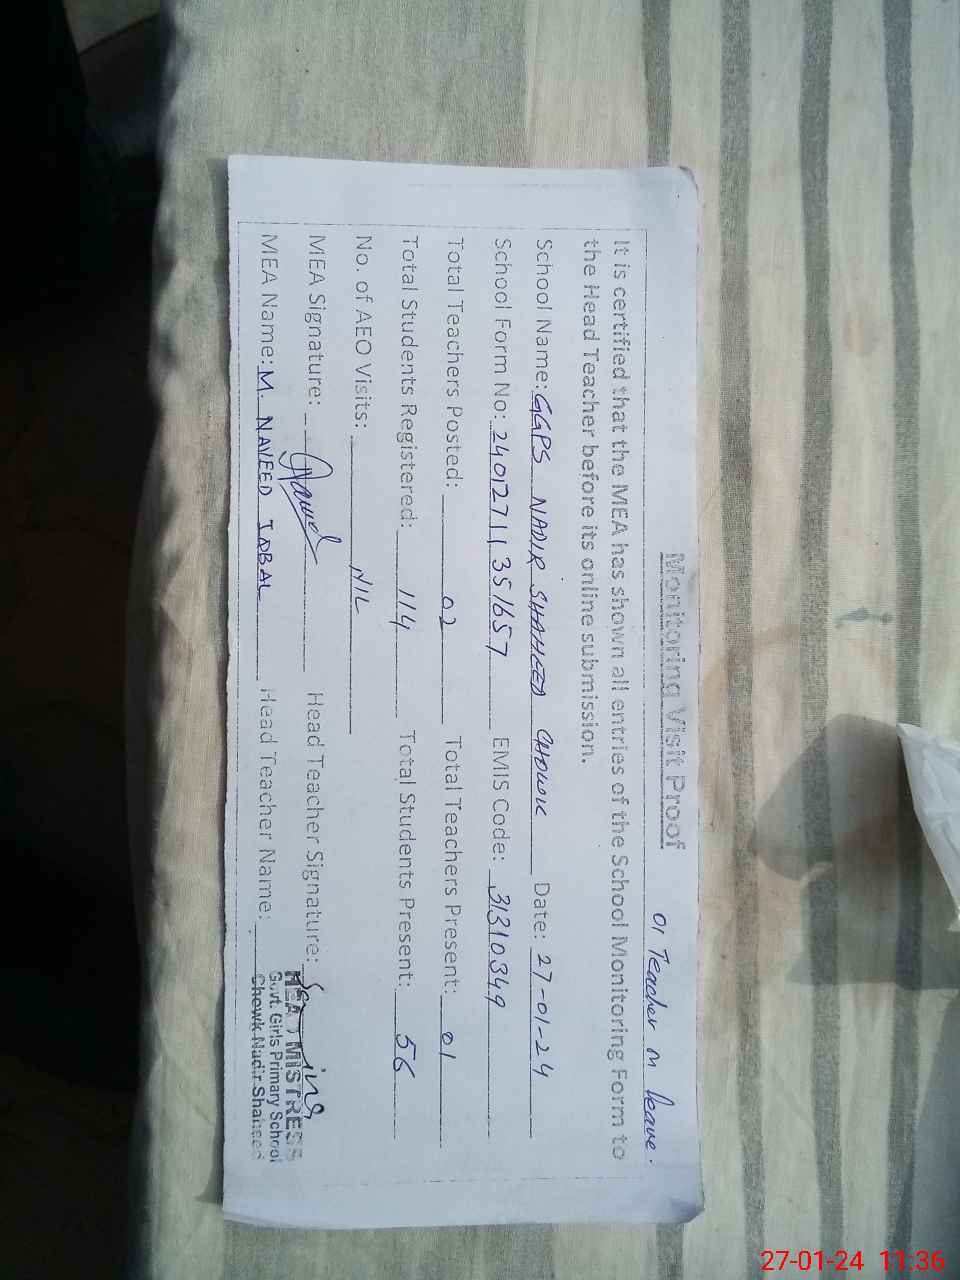 Monitoring Visit Proof
01 Teacher on leave.
It is certified that the MEA has shown all entries of the School Monitoring Form to
the Head Teacher before its online submission.
School Name: GGPS NADIR SHAHEED CHOWK Date: 27-01-24
School Form No: 24012711 351657 EMIS Code: 31310349
Total Teachers Posted: 02 Total Teachers Present: 01
Total Students Registered: 114 Total Students Present: 56
No. of AEO Visits: NIL
MEA Signature: Head Teacher Signature:
MEA Name: M. NAVEED IQBAL Head Teacher Name:
HEAD MISTRESS
Govt. Girls Primary School
Chowk Nadir Shaheed
27-01-24 11:36